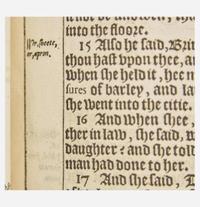 into the floore.
15 Also he said, Brin
thou hast vpon thee, an
when she held it, hee m
sures of barley, and la
she went into the citie.
16 And when shee,
ther in law, she said, w
daughter: and she told
man had done to her.
17 And she said,
Or, sheete,
or, apron.